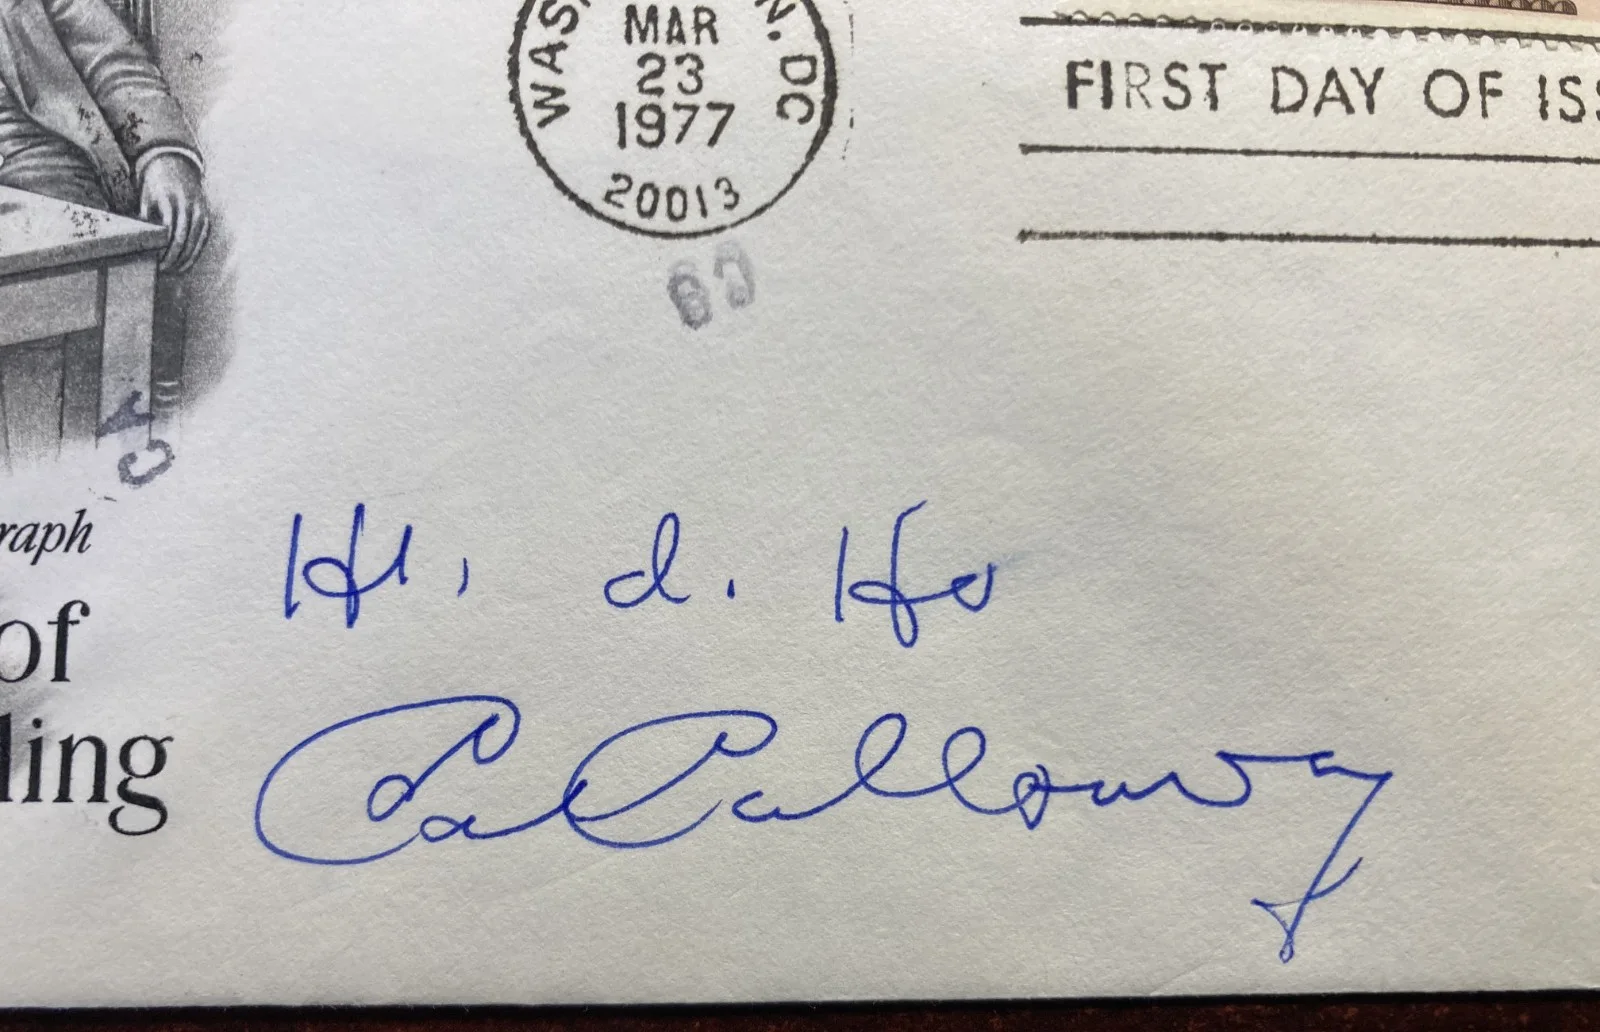 WAS N. DC
MAR
23
1977
20013
FIRST DAY OF ISS
raph
of
ling
Hi. d. Ho
Cab Calloway